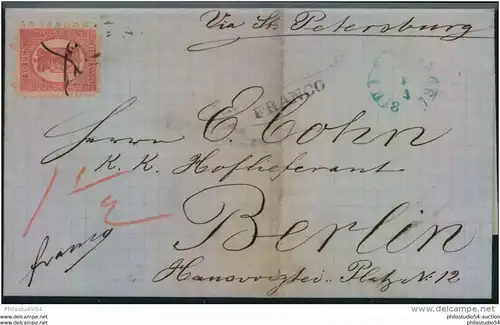 Via St. Petersburg
FRANCO
Herrn E. Cohn
K. K. Hoflieferant
Berlin
franco
Hausvoigtei-Platz No 12
Philastudio54
philastudio54-auction
philastudio54
delcampe.net